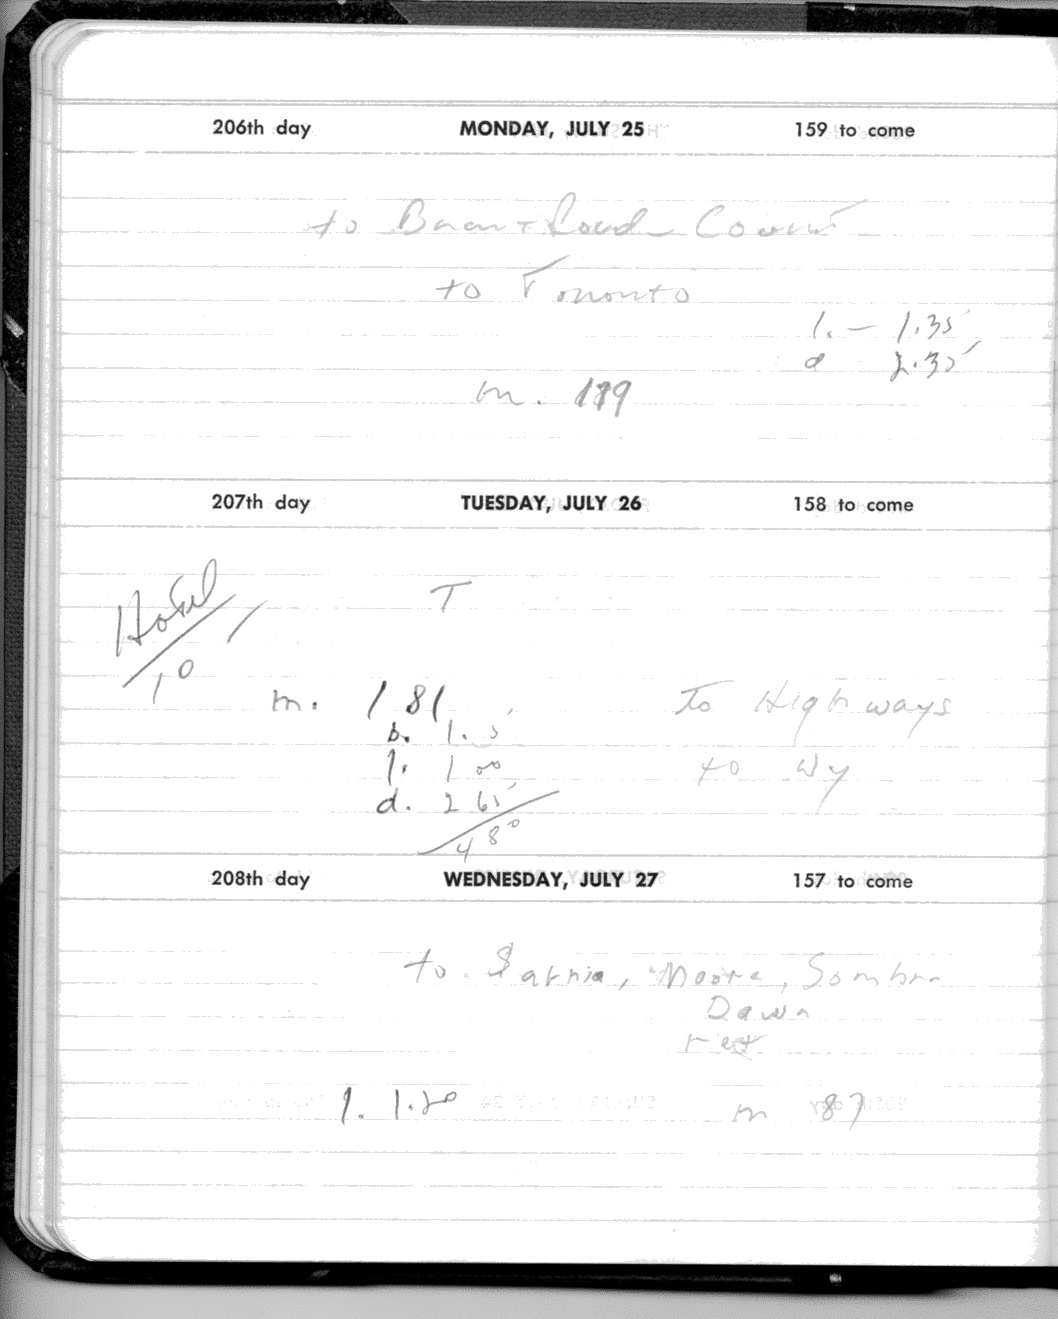 206th day MONDAY, JULY 25 159 to come
to Brant Road Count
to Toronto
l. — 1.35
d 2.35
m. 189
207th day TUESDAY, JULY 26 158 to come
Hotel
10
T
m. 181 to Highways
b. 1.15
l. 1 00 to Wy
d. 2 65
4 80
208th day WEDNESDAY, JULY 27 157 to come
to Sarnia, Moore, Sombra
Dawn
ret
l. 1.20 m 87